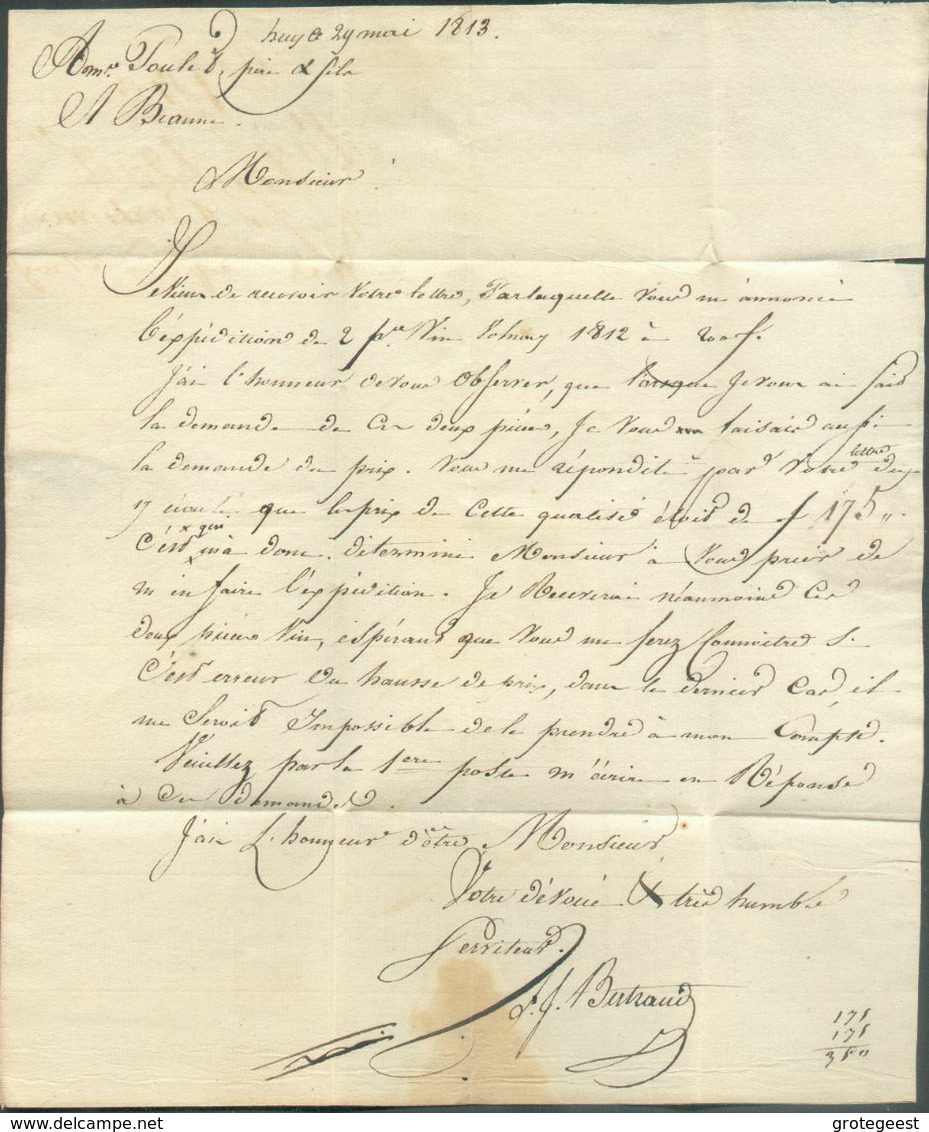 huy le 29 mai 1813.
A Mr. Poulet, père & fils
A Beaune.
Monsieur
Je Viens de recevoir Votre lettre, Par laquelle Vous m'annoncé
l'éxpédition de 2 pces Vin Volnay 1812 à 200 f.
J'ai l'honneur de vous Observer, que lorsque Je vous ai fait
la demande de Ces deux pièces, Je Vous faisais aussi
la demande du prix. Vous me répondite par Votre lettre du
17 écoulé que le prix de Cette qualité étoit de f 175 "
C'est qui m'à donc déterminé Monsieur à Vous prier de
m'en faire l'éxpédition. Je Recevrai néanmoins Ces
deux pièces Vin, espérant que Vous me ferez Connoitre si
C'est erreur Ou hausse de prix, dans le dernier Cas il
me Seroit Impossible de le prendre à mon Compte.
Veuillez par la 1ere poste m'écrire en Réponse
à Ces demandes.
J'ai L'honneur d'être Monsieur
Votre dévoué & très humble
Serviteur.
J. Bertrand
175
175
350
grotegeest